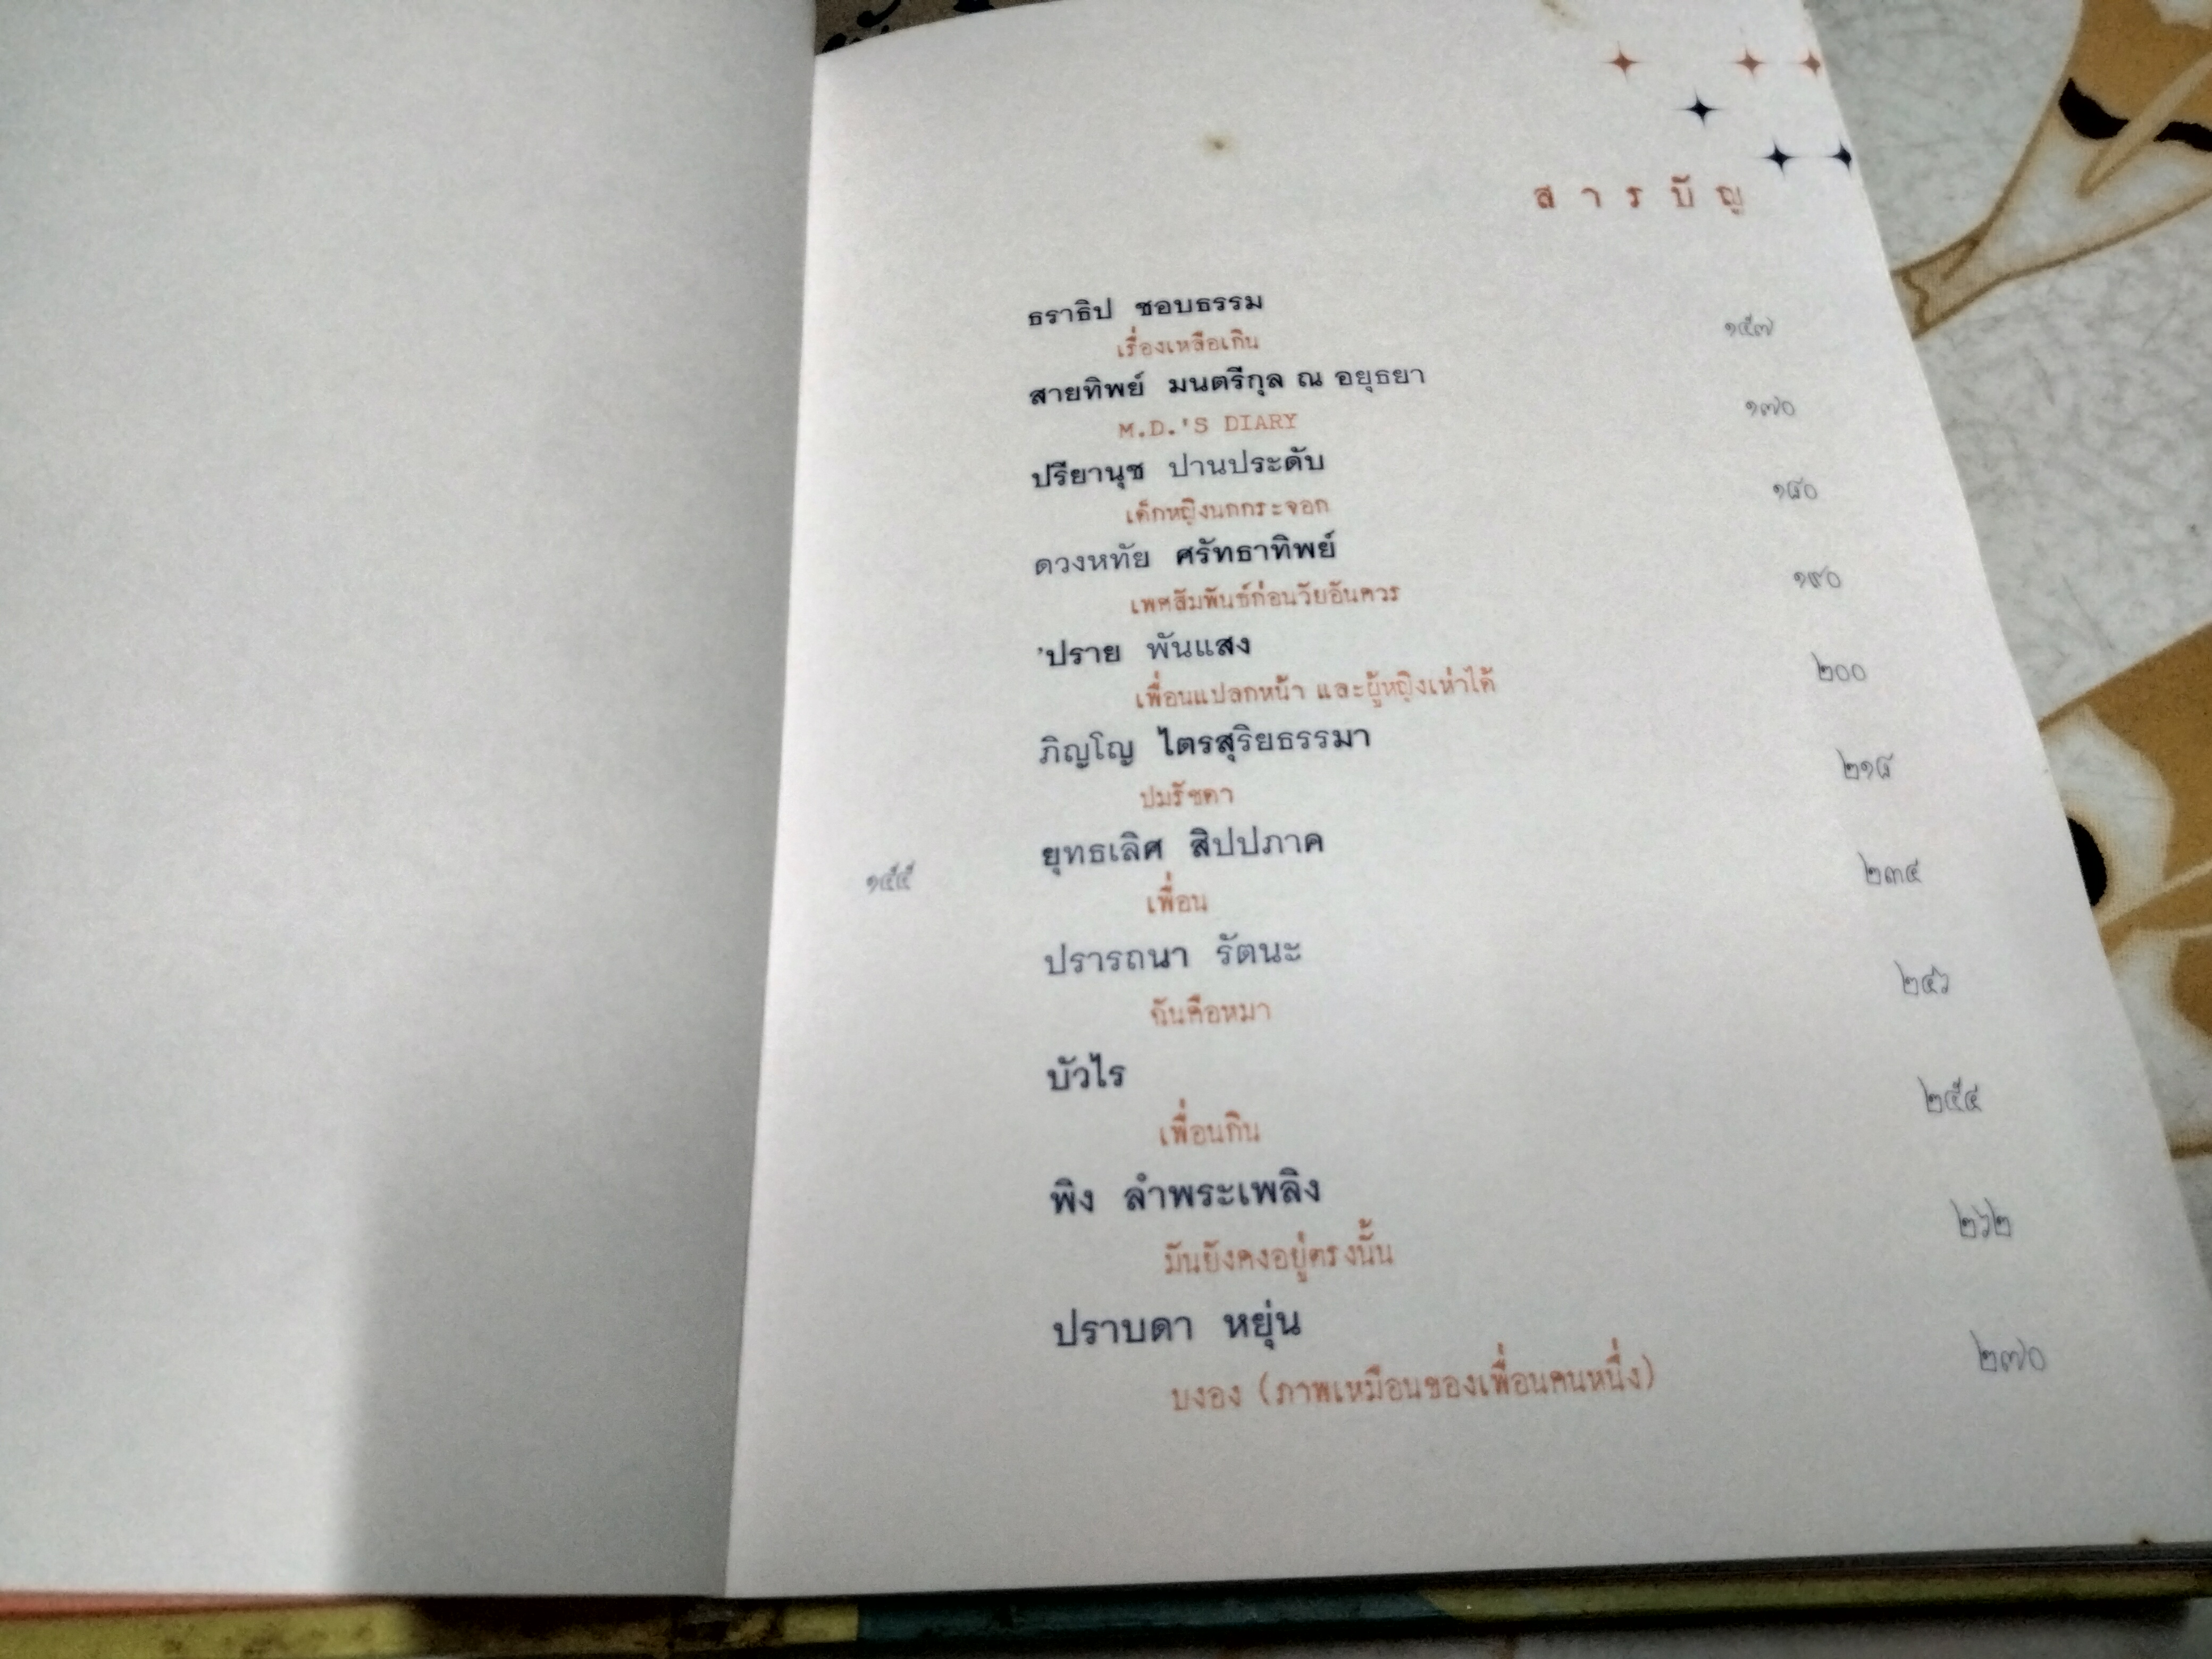 สารบัญ
ธราธิป ชอบธรรม
เรื่องเหลือเกิน ๑๕๗
สายทิพย์ มนตรีกุล ณ อยุธยา
M.D.'S DIARY ๑๗๐
ปรียานุช ปานประดับ
เด็กหญิงนกกระจอก ๑๘๐
ดวงหทัย ศรัทธาทิพย์
เพศสัมพันธ์ก่อนวัยอันควร ๑๙๐
'ปราย พันแสง
เพื่อนแปลกหน้า และผู้หญิงเห่าได้ ๒๐๐
ภิญโญ ไตรสุริยธรรมา
ปมรัชดา ๒๑๘
ยุทธเลิศ สิปปภาค
เพื่อน ๒๓๔
ปรารถนา รัตนะ
ฉันคือหมา ๒๔๖
บัวไร
เพื่อนกิน ๒๕๔
พิง ลำพระเพลิง
มันยังคงอยู่ตรงนั้น ๒๖๒
ปราบดา หยุ่น
บงอง (ภาพเหมือนของเพื่อนคนหนึ่ง) ๒๗๐
๑๕๕